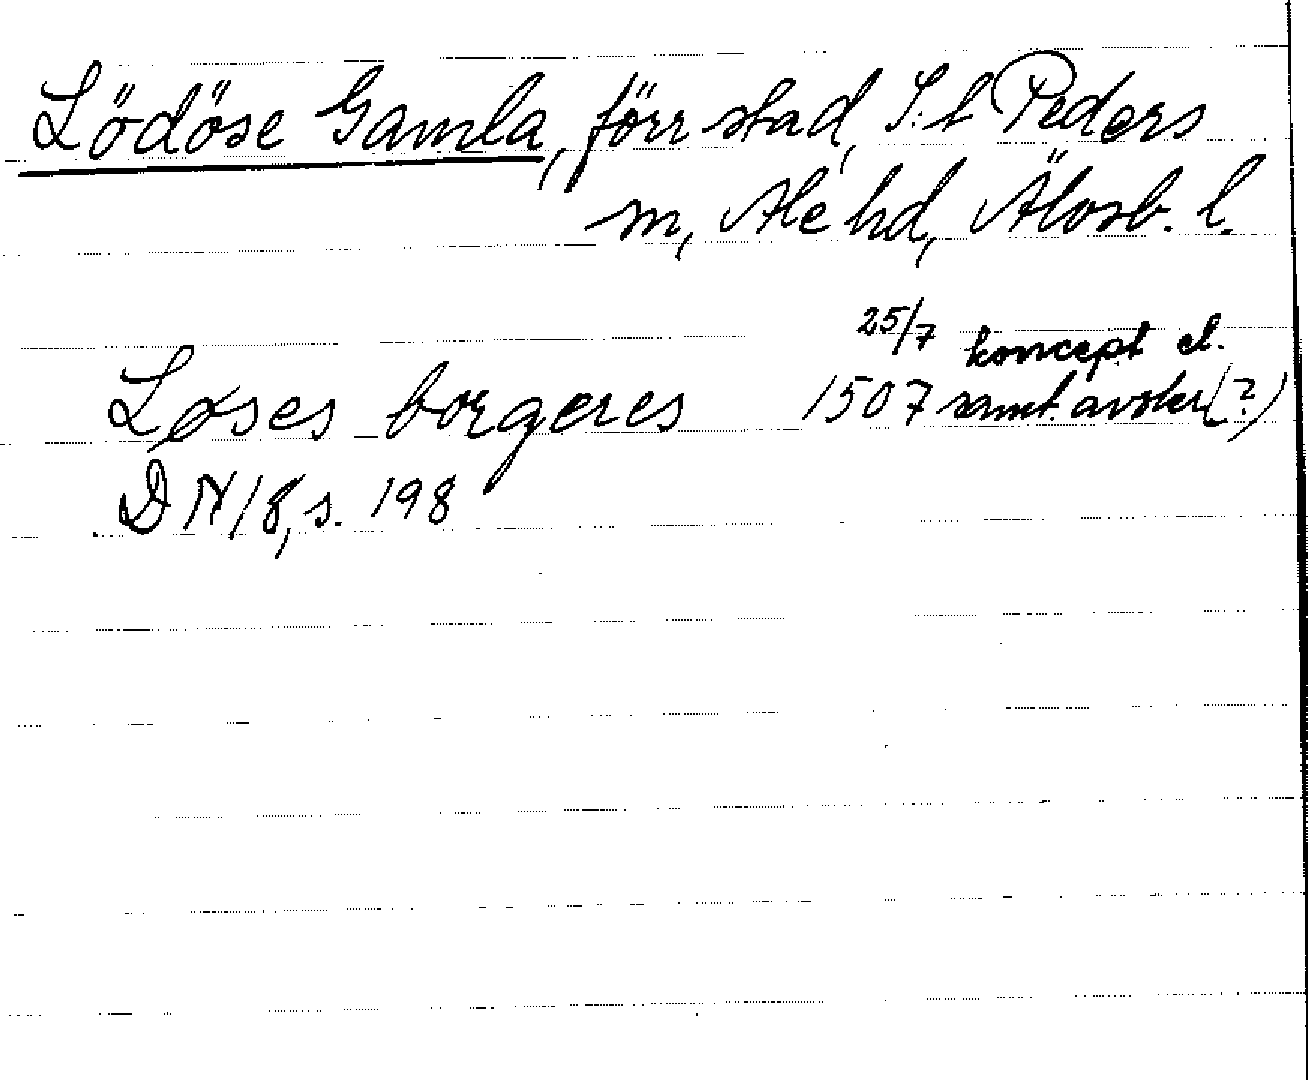 Lödöse Gamla, förr stad, S:t Peders
sn, Ale hd, Älvsb. l.
25/7 koncept el.
Løses borgeres 1507 samt. avskr (?)
DN 18, s. 198